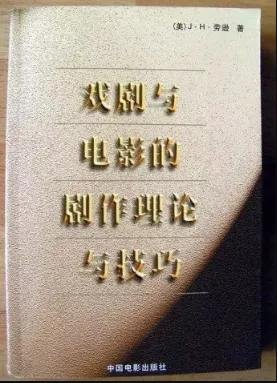 (美)J·H·劳逊 著
戏剧与
电影的
剧作理论
与技巧
中国电影出版社